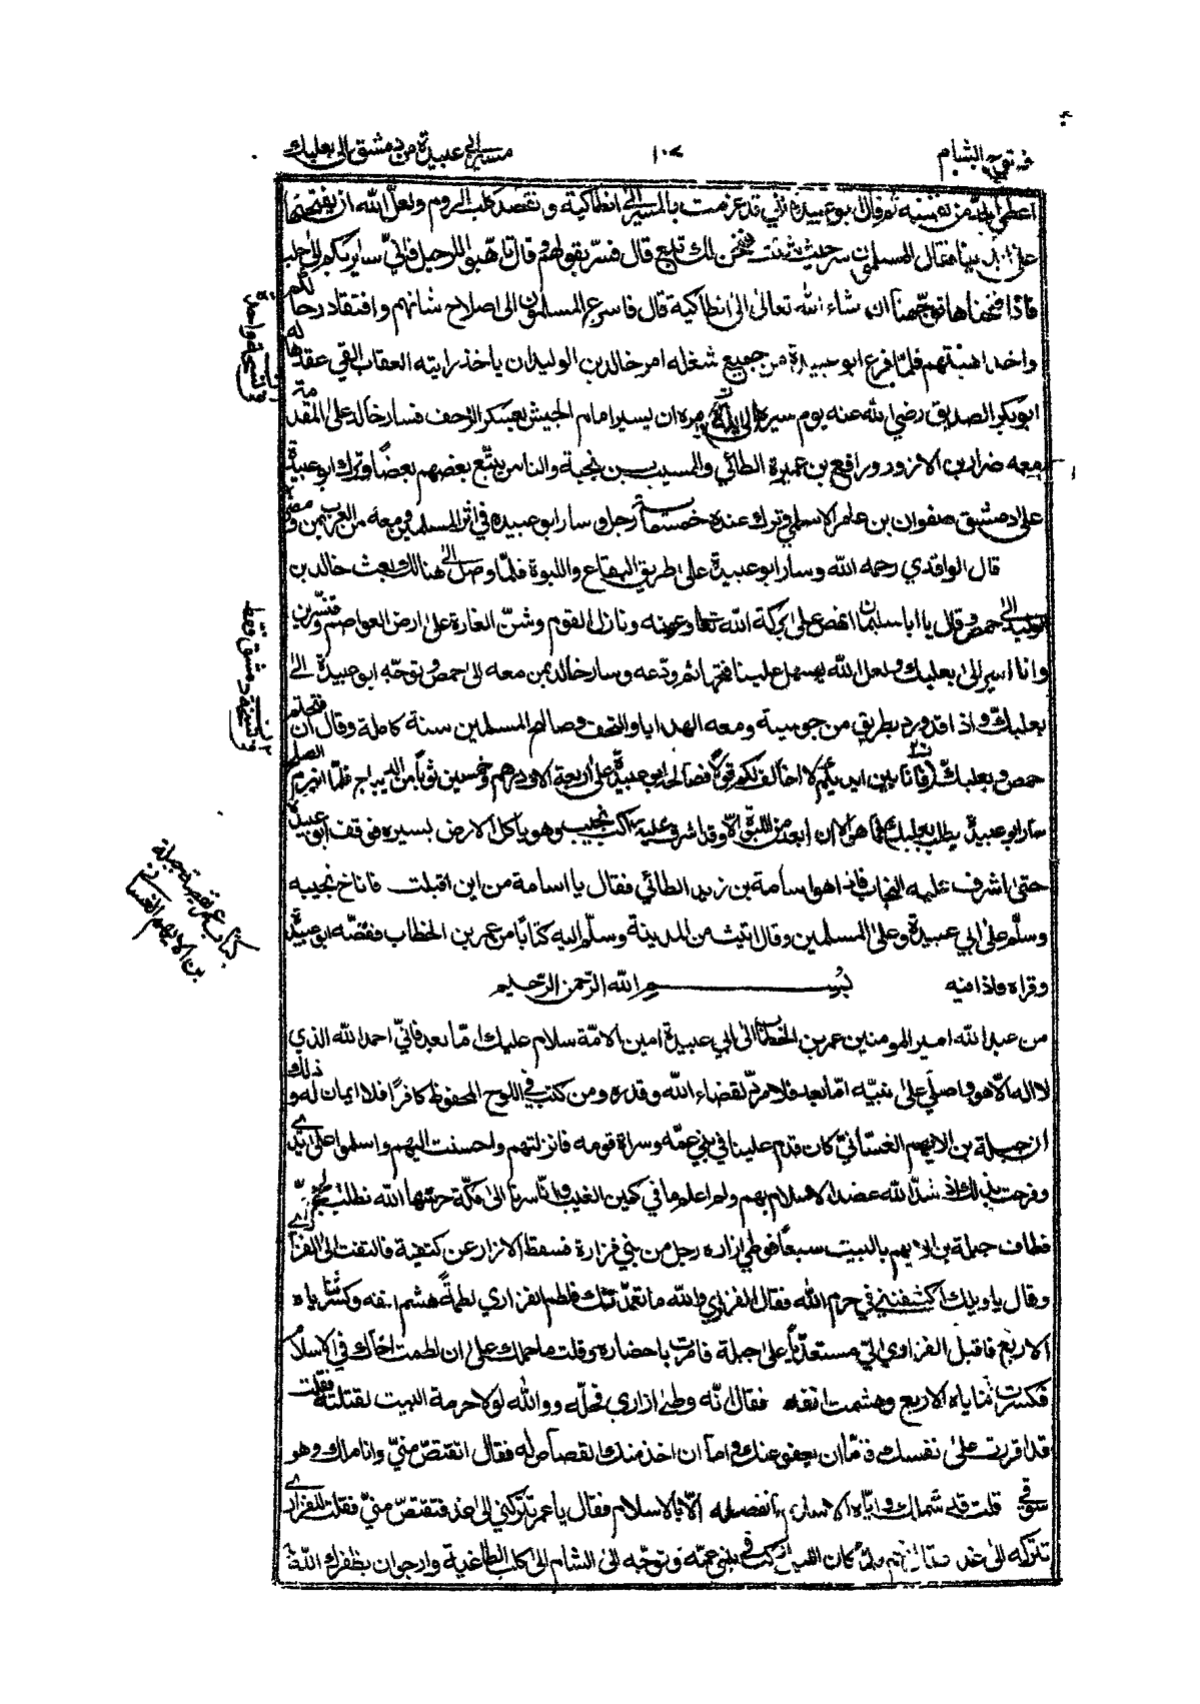 فتوح الشام ١٠٧ مسير ابي عبيدة من دمشق الى بعلبك
ثم قال ابو عبيدة اني قد عزمت بالمسير الى انطاكية ونقصد كلب الروم ولعل الله ان يفتحها
على ايدينا فقال المسلمون سر حيث شئت فنحن لك تبع قال فسر بقولهم وقال تاهبوا للرحيل فاني ساير بكم الى حلب
فاذا فتحناها توجهنا ان شاء الله تعالى الى انطاكية قال فاسرع المسلمون الى اصلاح شانهم وافتقاد رحالهم
واخذ اهبتهم فلما فرغ ابو عبيدة من جميع شغله امر خالد بن الوليد ان ياخذ رايته العقاب التي عقدها له
ابو بكر الصديق رضي الله عنه يوم سيره وامره ان يسير امام الجيش بعسكر الزحف فسار خالد على المقدمة
ومعه ضرار بن الازور ورافع بن عميرة الطائي والمسيب بن نجبة والناس يتبع بعضهم بعضا وترك ابو عبيدة
على دمشق صفوان بن عامر الاسلمي وترك عنده خمسمائة رجل وسار ابو عبيدة في اثر المسلمين ومعه من العرب من
قال الواقدي رحمه الله وسار ابو عبيدة على طريق البقاع واللبوة فلما وصل الى هنالك وبعث خالد بن
الوليد الى حمص وقال يا ابا سليمان انهض على بركة الله تعالى وعونه ونازل القوم وشن الغارة على ارض العواصم وقنسرين
وانا اسير الى بعلبك ولعل الله يسهل علينا فتحها ثم ودعه وسار خالد بمن معه الى حمص وتوجه ابو عبيدة الى
بعلبك واذا قد ورد بطريق من جوسية ومعه الهدايا والتحف وصالح المسلمين سنة كاملة وقال ان فتحتم
حمص وبعلبك فانا بين ايديكم لا اخالف لكم قولا فصالحه ابو عبيدة على اربعة الاف درهم وخمسين ثوبا من الديباج فلما انبرم الصلح
سار ابو عبيدة يطلب بعلبك فما هو الا ان ابعد من اللبوة الا وقد اشرف عليه راكب نجيب وهو ياكل الارض بسيره فوقف ابو عبيدة
حتى اشرف عليه النجاب فاذا هو اسامة بن زيد الطائي فقال يا اسامة من اين اقبلت فاناخ نجيبه
وسلم على ابي عبيدة وعلى المسلمين وقال اتيت من المدينة وسلم اليه كتابا من عمر بن الخطاب ففضه ابو عبيدة
وقراه فاذا فيه بسم الله الرحمن الرحيم
من عبد الله امير المومنين عمر بن الخطاب الى ابي عبيدة امين الامة سلام عليك اما بعد فاني احمد الله الذي
لا اله الا هو واصلي على نبيه اما بعد فلا مرد لقضاء الله وقدره ومن كتب في اللوح المحفوظ كافرا فلا ايمان له وذلك
ان جبلة بن الايهم الغساني كان قدم علينا في بني عمه وسراة قومه فانزلتهم واحسنت اليهم واسلموا على يدي
وفرحت بذلك اذ شد الله عضد الاسلام بهم ولم اعلم ما في كمين الغيب وانا سرنا الى مكة حرسها الله نطلب الحج
فطاف جبلة بن الايهم بالبيت سبعا فوطي ازاره رجل من بني فزارة فسقط الازار عن كتفيه فالتفت الى الفزاري
وقال يا ويلك اكشفتني في حرم الله فقال الفزاري والله ما تعمدتك فلطم الفزاري لطمة هشم انفه وكسر ثناياه
الاربع فاقبل الفزاوي الي مستعديا على جبلة فامرت باحضاره وقلت ما حملك على ان لطمت اخاك في الاسلام
فكسرت ثناياه الاربع وهشمت انفه فقال انه وطئ ازاري فحله ووالله لولا حرمة البيت لقتلته فقلت
قد اقررت على نفسك فاما ان يعفو عنك واما ان اخذ منك القصاص له فقال اتقتص مني وانا ملك وهو
سوقي قلت قد شملك واياه الاسلام الا بالاسلام فقال يا عمر تتركني الى غد فتقتص مني فقلت للفزاري
تتركه الى غد فقال نعم فلما كان الليل ركب في بني عمه وتوجه الى الشام الى كلب الطاغية وارجو ان يظفرك الله
كتاب عمر بقصة جبلة
بن الايهم الغساني